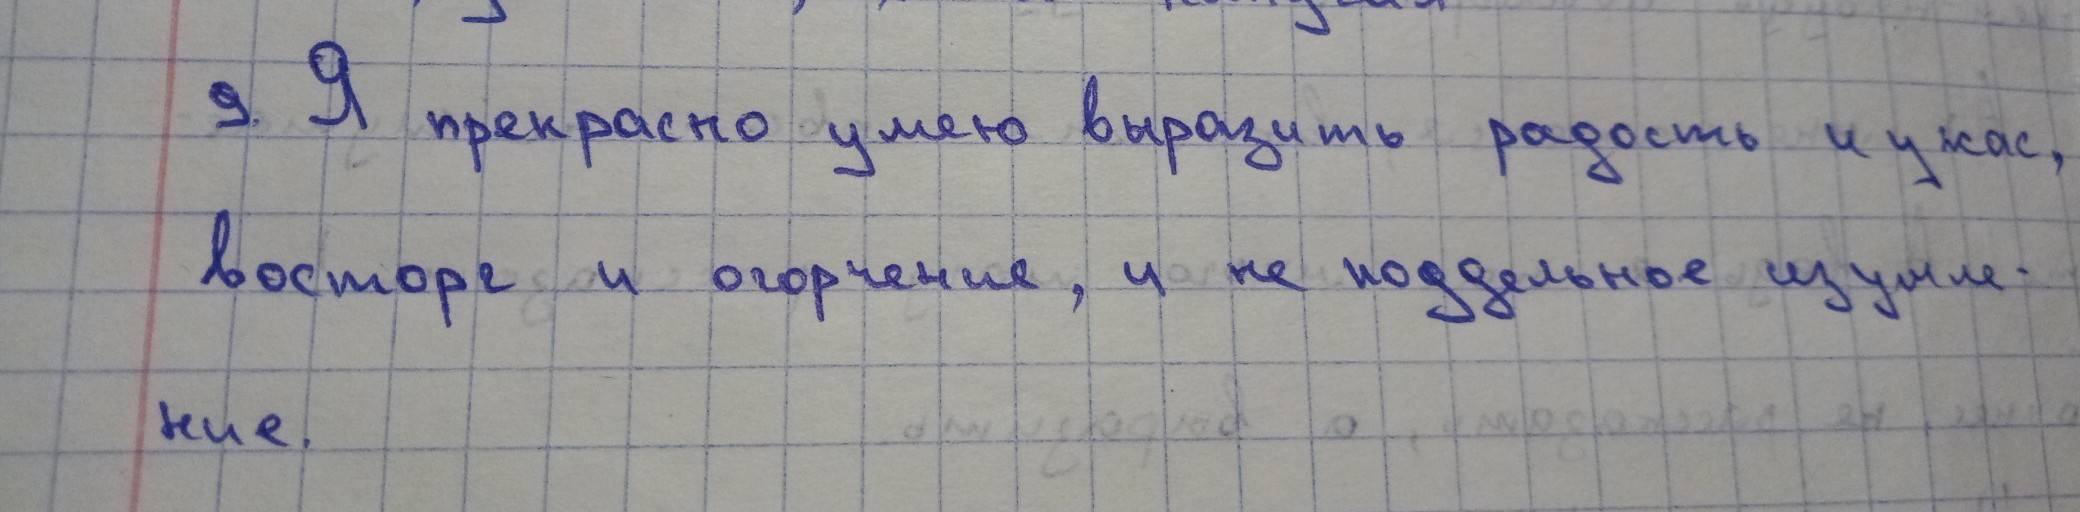 9. Я прекрасно умею выразить радость и ужас,
восторг и огорчение, и не поддельное изумле-
ние.